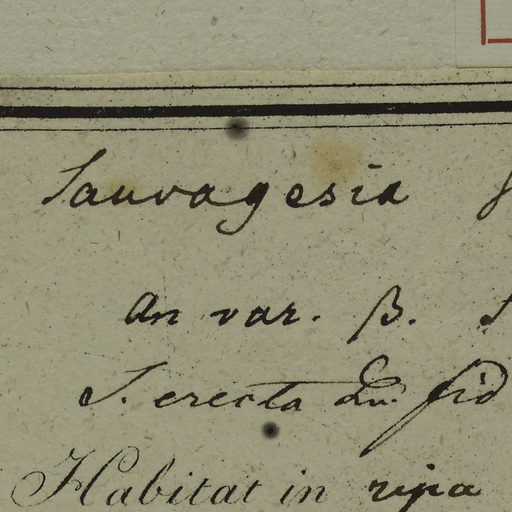 Sauvagesia
an var. β.
S. erecta Lin. fid
Habitat in ripa